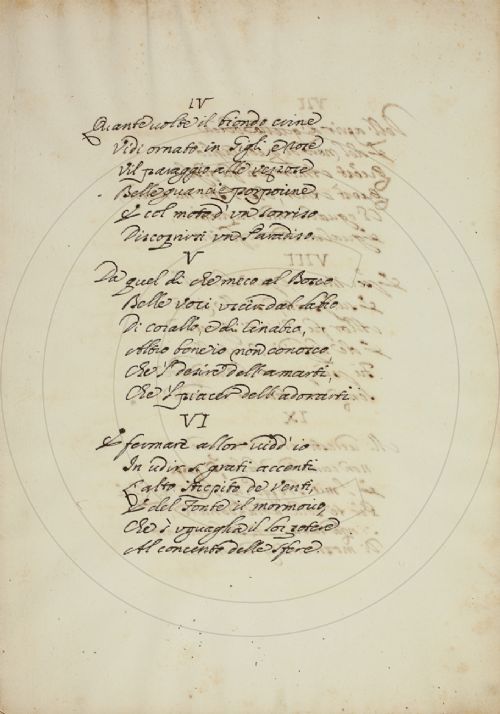 IV
Quante volte il biondo crine
Vidi ornato in Gigli, e rose
Vil paraggio alle vezzose
Belle guancie porporine
Et col moto d'un sorriso
Discoprirti un Paradiso.
V
Da quel dì che meco al Bosco
Belle voci uscir dal labro
Di corallo, e di Cinabro,
Altro bone io non conosco,
Che 'l desire dell'amarti,
Che 'l piacer dell'adorarti
VI
Et fermare allor vidd'io
In udir sì grati accenti
L'alto strepito de venti,
E del Fonte il mormorio,
Che s'uguaglia il lor potere
Al concento delle sfere